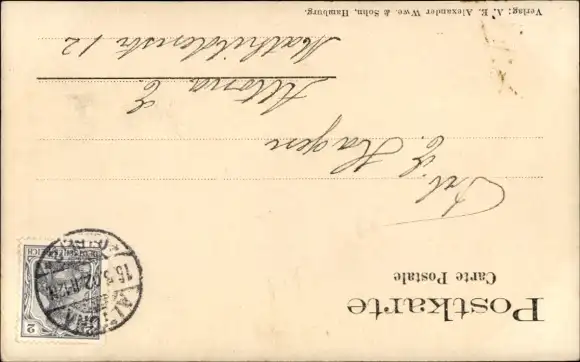 Postkarte
Carte Postale
Frl.
E. Hagen
Altona E.
Mathildenstr 12
Verlag: A. E. Alexander Wwe. & Sohn, Hamburg.
ALTONA
15.5.02
2
REICH